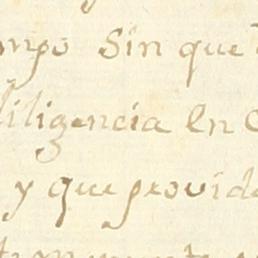 mpo Sin que
diligencia en
y que provide